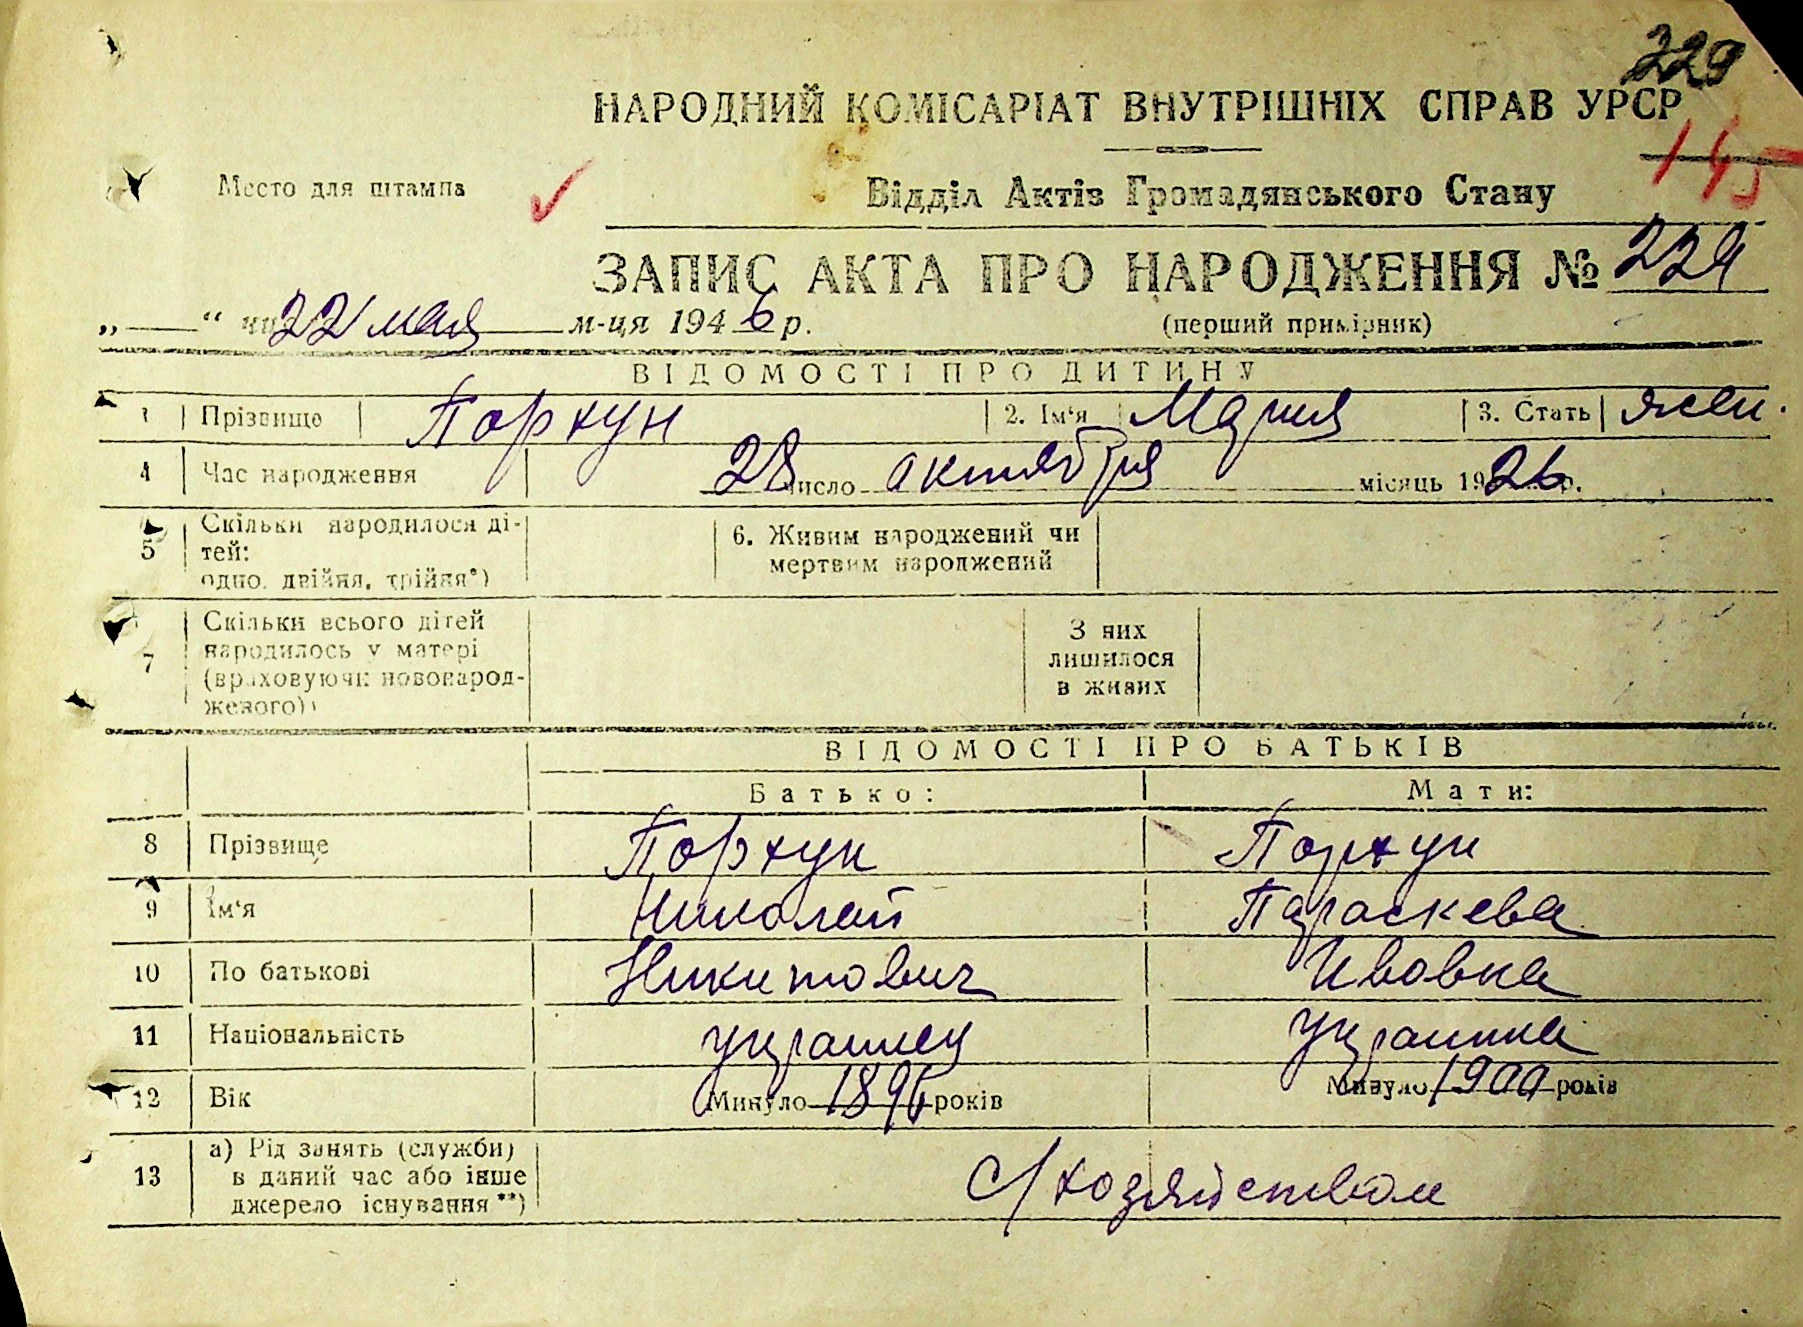 229
НАРОДНИЙ КОМІСАРІАТ ВНУТРІШНІХ СПРАВ УРСР
145
Место для штампа
Відділ Актів Громадянського Стану
ЗАПИС АКТА ПРО НАРОДЖЕННЯ № 229
„ “ 22 мая м-ця 1946 р. (перший примірник)
ВІДОМОСТІ ПРО ДИТИНУ
1 Прізвище Порхун 2. Ім'я Мария 3. Стать жен.
4 Час народження 28 число октября місяць 1926 р.
5 Скільки народилося ді-
тей:
одно, двійня, трійня*)
6. Живим народжений чи
мертвим народжений
7 Скільки всього дітей
народилось у матері
(враховуючи новонарод-
женого)
З них
лишилося
в живих
ВІДОМОСТІ ПРО БАТЬКІВ
Батько: Мати:
8 Прізвище Порхун Порхун
9 Ім'я Николай Параскева
10 По батькові Никитович Ивовна
11 Національність украинец украинка
12 Вік Минуло років Минуло 1900 років
13 а) Рід занять (служби)
в даний час або інше
джерело існування**)
с/хозяйством